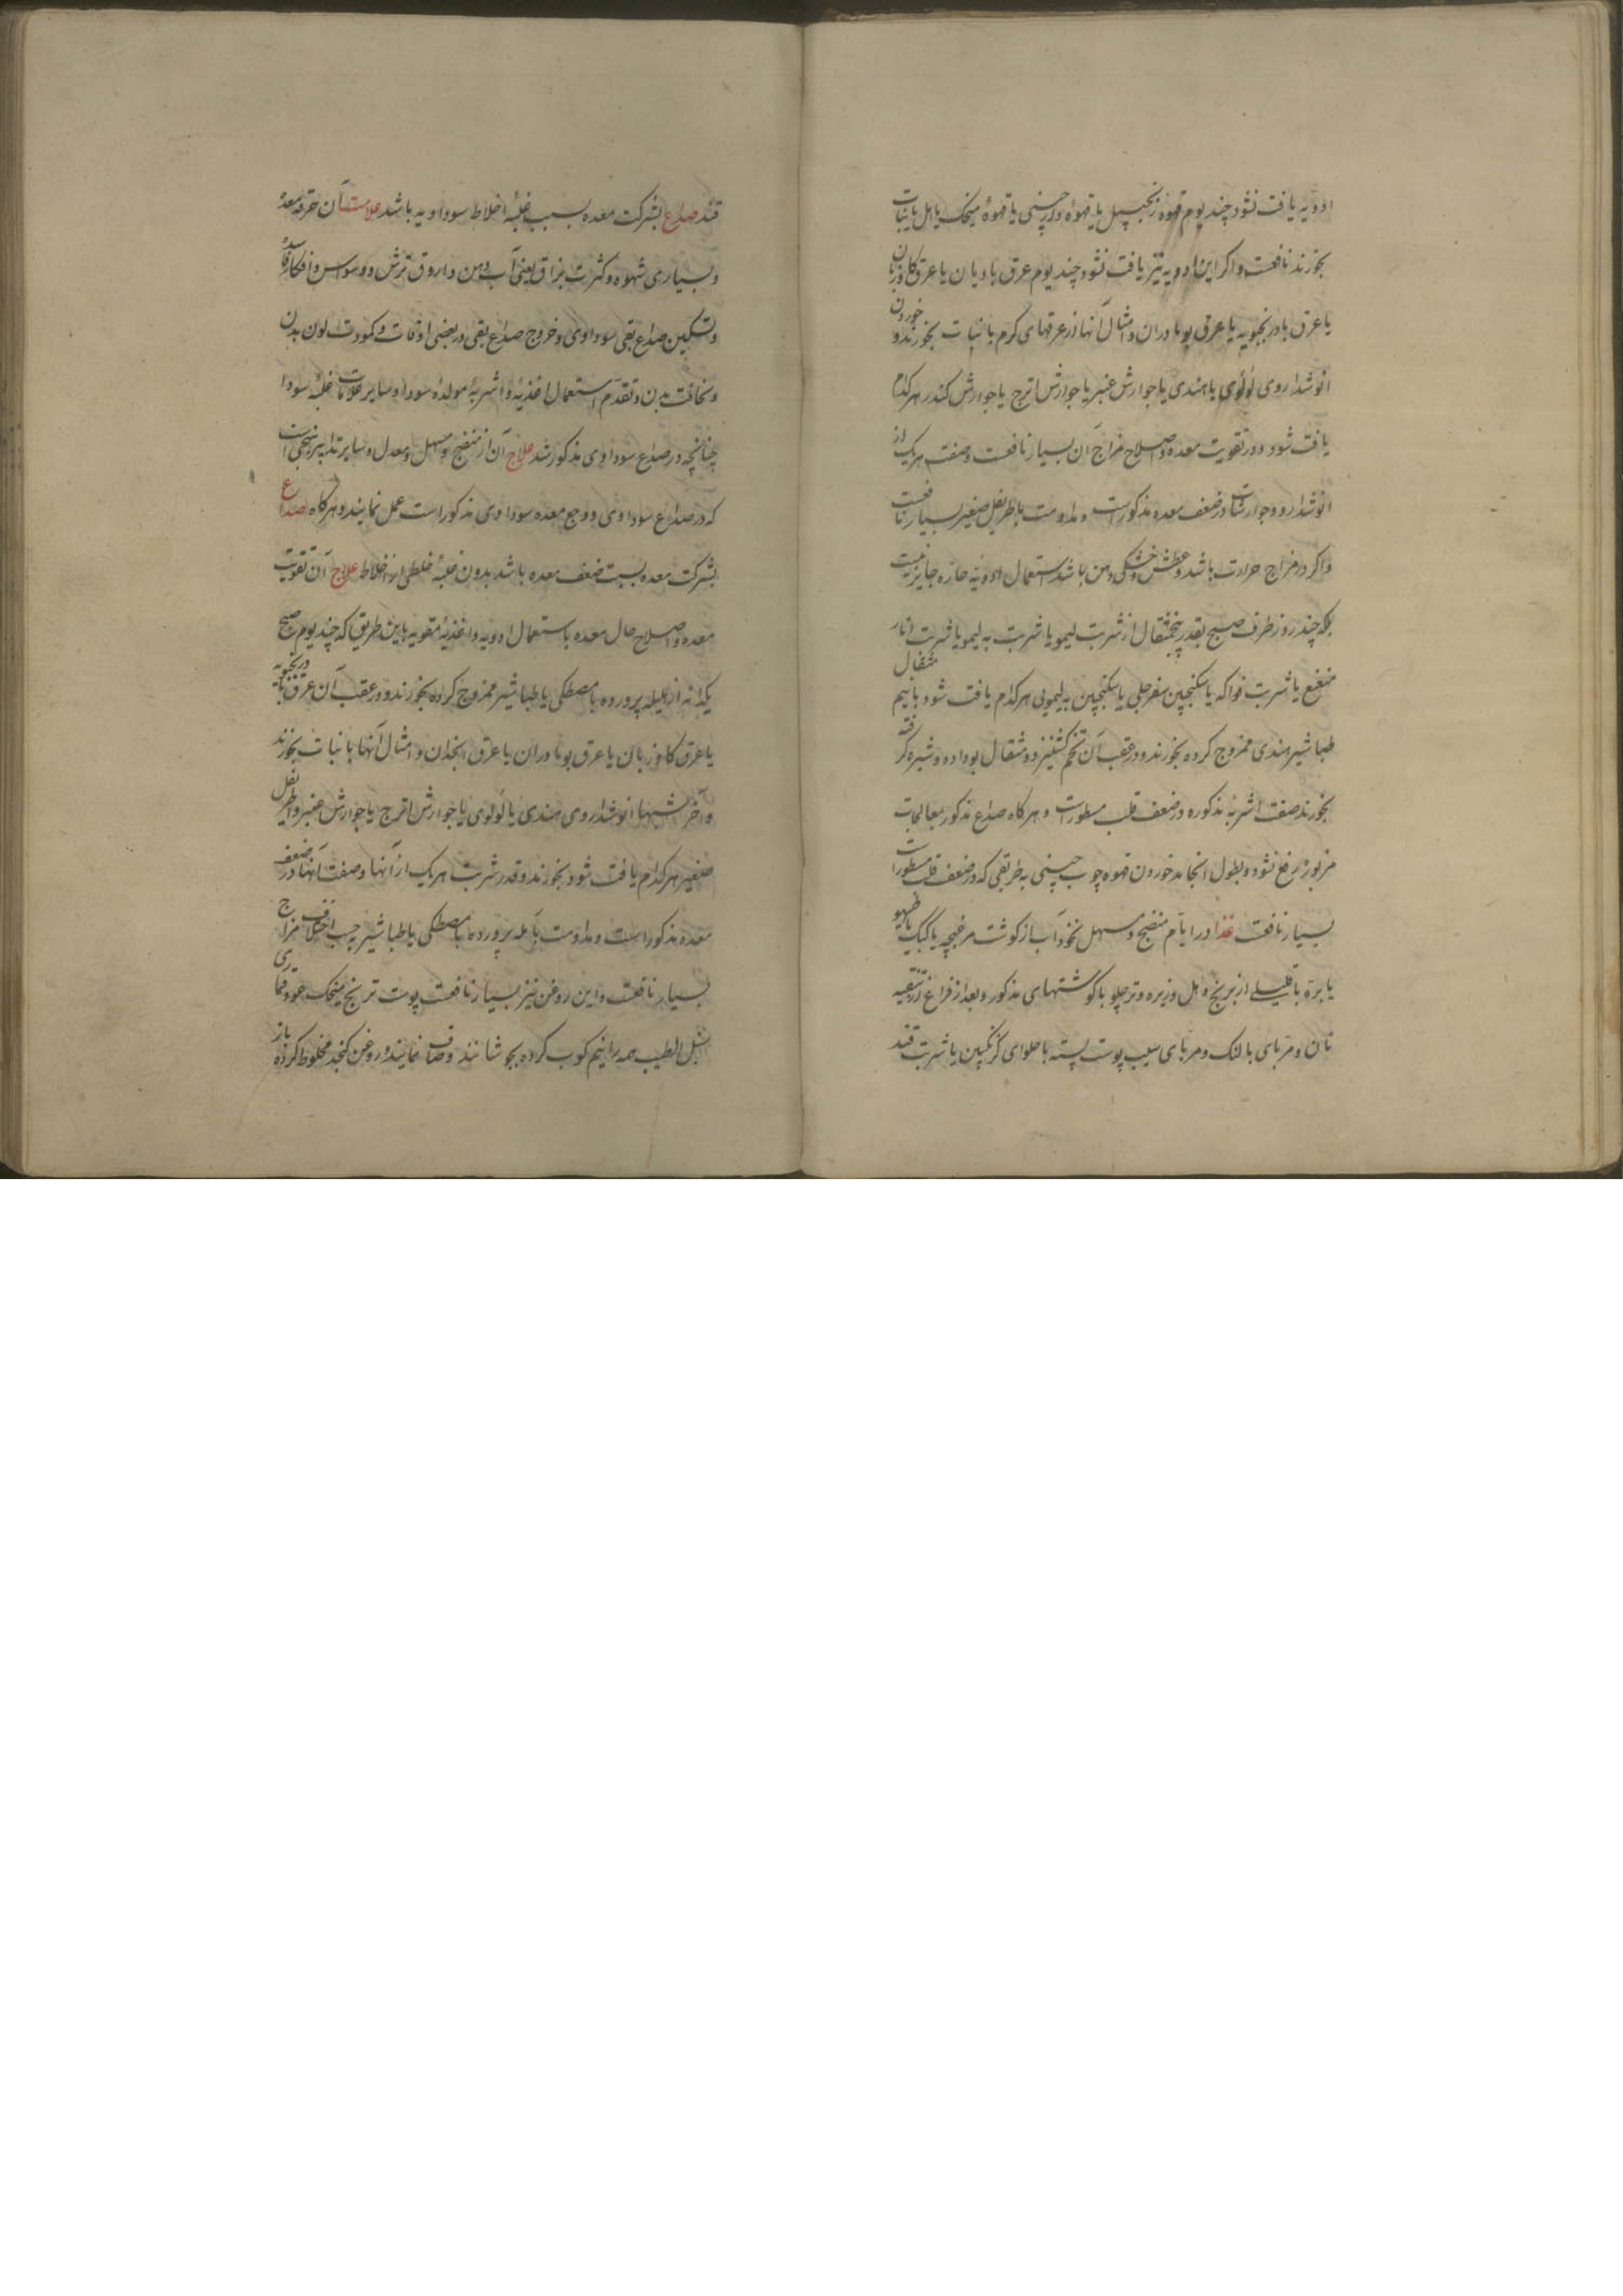 ادویه یافت نشود چند یوم قهوه زنجبیل یا قهوهٔ دارچینی یا قهوهٔ میخک یا هل یا نبات
بخورند نافعست و اکر این ادویه نیز یافت نشود چند یوم عرق بادیان یا عرق کاوزبان
یا عرق بادرنجبویه یا عرق بومادران و امثال آنها از عرقهای کرم با نبات بخورند و خوردن
انوشداروی لؤلؤی یا هندی یا جوارش عنبر یا جوارش اترج یا جوارش کندر هر کدام
یافت شود در تقویت معده و اصلاح مزاج آن بسیار نافعست و صفت هر یک از
انوشدارو و جوارشات در ضعف معده مذکور است و مداومت باطریفل صغیر بسیار نافعست
و اکر در مزاج حرارت باشد و عطش و خشکی دهن باشد استعمال ادویهٔ حاره جایز نیست
بلکه چند روز طرف صبح بقدر پنجمثقال از شربت لیمو یا شربت به لیمو یا شربت انار
منعنع یا شربت فواکه یا سکنجبین سفرجلی یا سکنجبین به لیمویی هر کدام یافت شود با نیم مثقال
طباشیر هندی ممزوج کرده بخورند و در عقب آن تخم کشنیز دو مثقال بو داده و شیره کرفته
بخورند صفت اشربهٔ مذکوره در ضعف قلب مسطور است و هرکاه صداع مذکور بمعالجات
مزبوره رفع نشود و بطول انجامد خوردن قهوه چوب چینی به طریقی که در ضعف قلب مسطور است
بسیار نافعست غذا در ایام منضج و مسهل نخود آب از کوشت مرغبچه یا کبک یا طیهو
یا بره با قلیلی از برنج و هل و زیره و تر چلو با کوشتهای مذکور و بعد از فراغ از تنقیه
نان و مربای بالنک و مربای سیب پوست پسته با حلوای کزنکبین یا شربت قند
قند صداع بشرکت معده بسبب غلبهٔ اخلاط سوداویه باشد علامت آن حرقه معده
و بسیاری شهوه و کثرت بزاق یعنی آب دهن و اروق ترش و وسواس و افکار فاسده
و تسکین صداع بقی سوداوی و خروج صداع بقی در بعضی اوقات و کمودت لون بدن
و نحافت بدن و تقدم استعمال اغذیه و اشربهٔ مولده سودا و سایر علامات غلبهٔ سودا
چنانچه در صداع سوداوی مذکور شد علاج آن از منضج و مسهل و معدل و سایر تدابیر بنهجی است
که در صداع سوداوی و وجع معده سوداوی مذکور است عمل نمایند و هرکاه صداع
بشرکت معده بسبب ضعف معده باشد بدون غلبهٔ خلطی از اخلاط علاج آن تقویت
معده و اصلاح حال معده باستعمال ادویه و اغذیهٔ مقویه باین طریق که چند یوم صبح
یکدانه از هلیله پرورده با مصطکی یا طباشیر ممزوج کرده بخورند و در عقب آن عرق بادرنجبویه
یا عرق کاوزبان یا عرق بومادران یا عرق انجدان و امثال آنها با نبات بخورند
و آخر شبها انوشداروی هندی یا لؤلؤی یا جوارش اترج یا جوارش عنبر و اطریفل
صغیر هر کدام یافت شود بخورند و قدر شربت هر یک از آنها و صفت آنها در ضعف
معده مذکور است و مداومت بآمله پرورده با مصطکی یا طباشیر بحسب اختلاف مزاج
بسیار نافعست و این روغن نیز بسیار نافعست پوست ترنج میخک عود قماری
سنبل الطیب همه را نیم کوب کرده بجوشانند و صاف نمایند و روغن کنجد مخلوط کرده باز